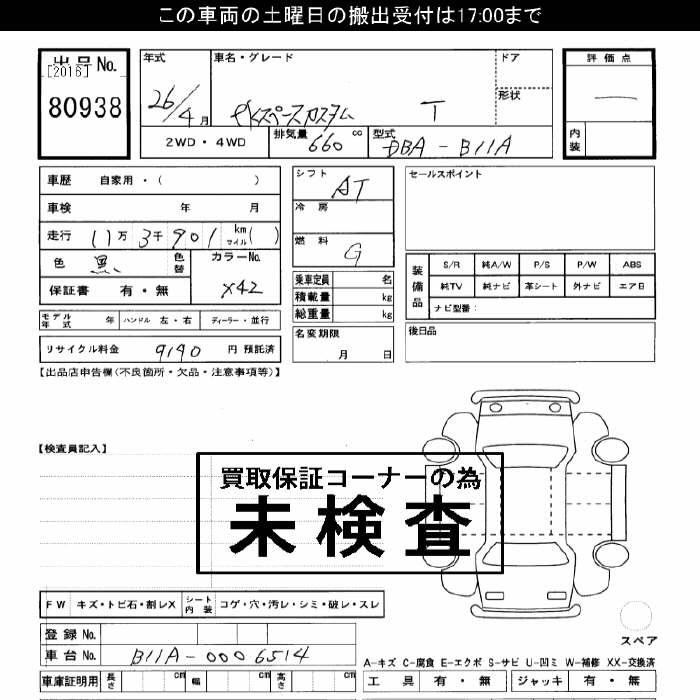 この車両の土曜日の搬出受付は17:00まで
出品No.
[2016]
80938
年式
26/4月
車名・グレード
eKスペースカスタム T
ドア
形状
2WD・4WD
排気量 660 cc
型式 DBA-B11A
評価点
―
内装
車歴 自家用・( )
車検 年 月
走行 11万 3千 901 km マイル( )
色 黒
色替
カラーNo.
X42
保証書 有・無
モデル年式 年
ハンドル 左・右
ディーラー・並行
リサイクル料金 9190 円 預託済
シフト AT
冷房
燃料 G
乗車定員 名
積載量 kg
総重量 kg
名変期限
月 日
セールスポイント
装備品
S/R 純A/W P/S P/W ABS
純TV 純ナビ 革シート 外ナビ エアB
ナビ型番:
後日品
【出品店申告欄(不良箇所・欠品・注意事項等)】
【検査員記入】
買取保証コーナーの為
未検査
FW キズ・トビ石・割レX
シート内装 コゲ・穴・汚レ・シミ・破レ・スレ
登録No.
車台No. B11A-0006514
車庫証明用 長さ cm 幅 cm 高さ cm
スペア
A-キズ C-腐食 E-エクボ S-サビ U-凹ミ W-補修 XX-交換済
工具 有・無 ジャッキ 有・無